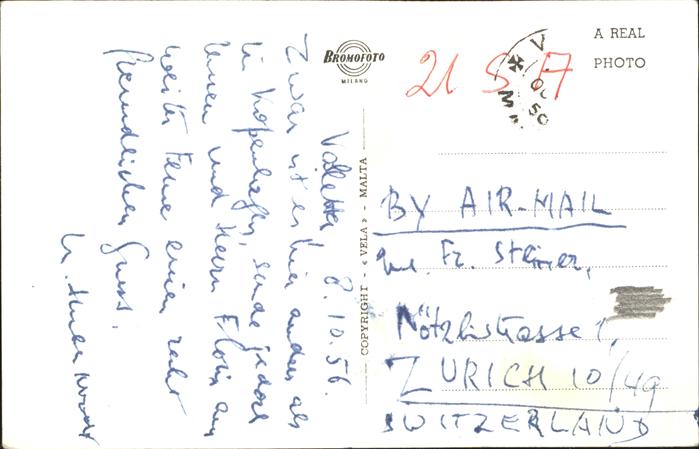 Valletta, 8.10.56.
Zwar ist es hier anders als
in Kopenhagen, sende jedoch
Ihnen und Herrn Floris aus
weiter Ferne einen recht
freundlichen Gruss.
BROMOFOTO
MILANO
COPYRIGHT - «VELA» - MALTA
A REAL
PHOTO
21 S 17
BY AIR-MAIL
Fr. Steiner,
Nötzlistrasse 1,
ZURICH 10/49
SWITZERLAND